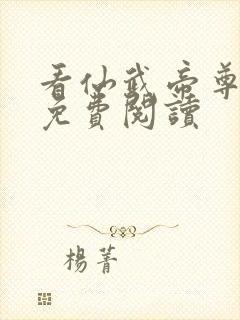 看仙武帝尊
免費閱讀
楊菁